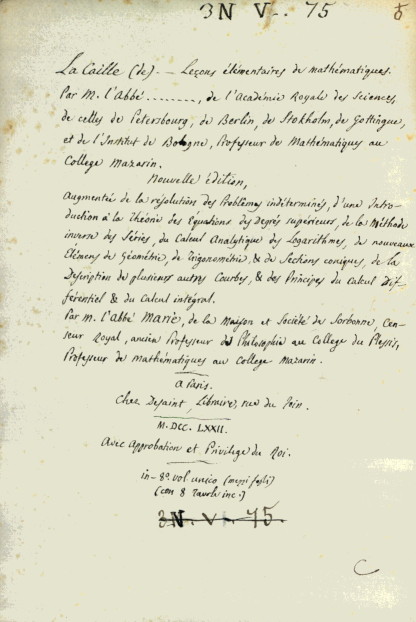 3N V.. 75
5
La Caille (de). — Leçons élémentaires de mathématiques.
Par M. l'Abbé ........, de l'Académie Royale des Sciences,
de celles de Petersbourg, de Berlin, de Stokholm, de Gottingue,
et de l'Institut de Bologne, Professeur de Mathématiques au
College Mazarin.
Nouvelle édition,
Augmentée de la résolution des Problêmes indéterminés, d'une Intro-
duction à la théorie des Équations des Degrés supérieurs, de la Méthode
inverse des Séries, du Calcul Analytique des Logarithmes, de nouveaux
Élémens de Géométrie, de Trigonométrie, & de Sections coniques, de la
Description de plusieurs autres Courbes, & des Principes du Calcul Dif-
férentiel & du Calcul intégral.
Par M. l'abbé Marie, de la Maison et Société de Sorbonne, Cen-
seur Royal, ancien Professeur de Philosophie au College du Plessis,
Professeur de mathématiques au College Mazarin.
A Paris.
Chez Desaint, Libraire, rue du Foin.
M.DCC.LXXII.
Avec Approbation et Privilege du Roi.
in-8º vol unico (mezzi fogli)
(con 8 Tavole inc.)
3N. V. 75.
C